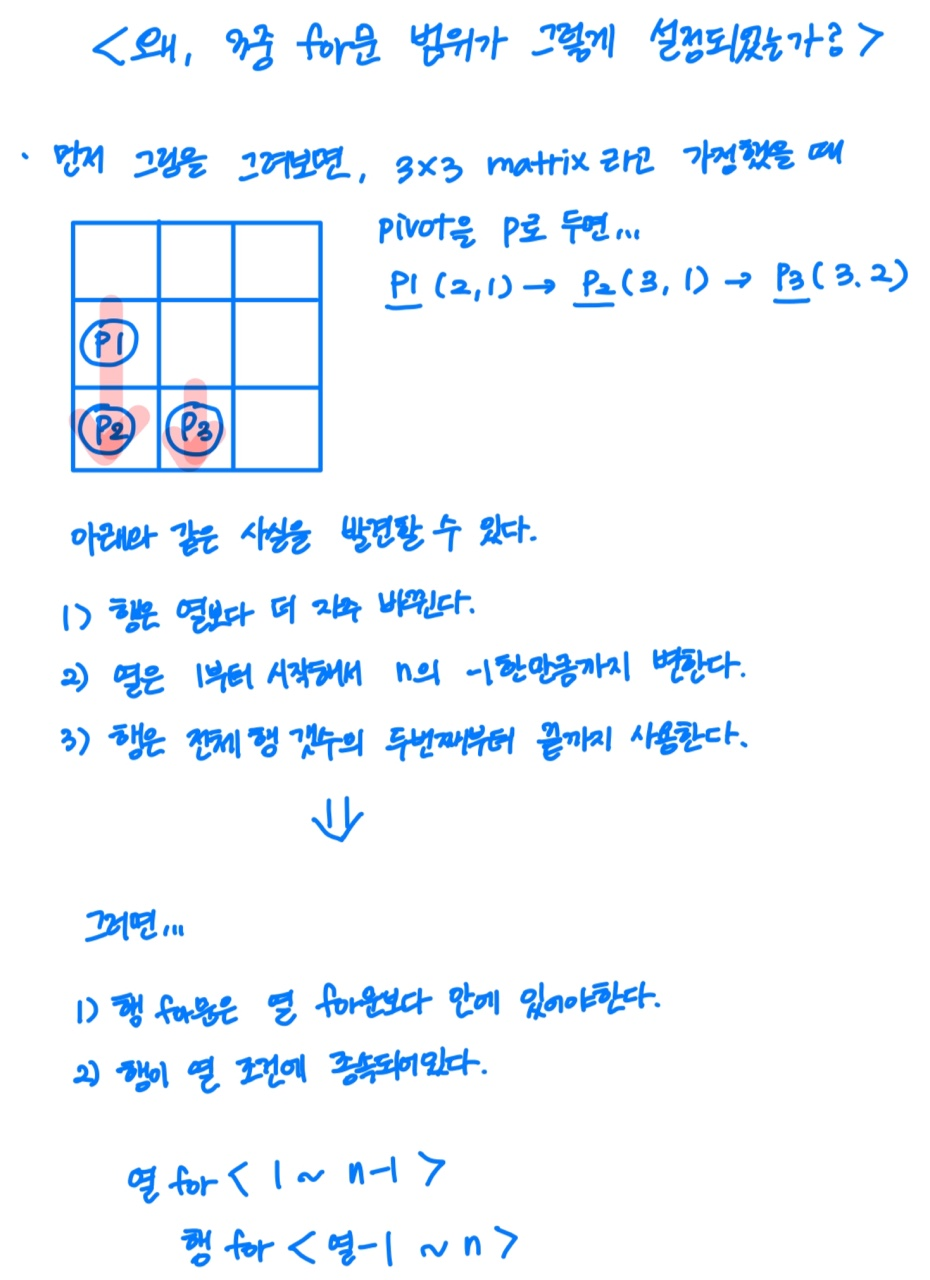 <왜, 3중 for문 범위가 그렇게 설정되었는가?>
· 먼저 그림을 그려보면, 3×3 matrix 라고 가정했을 때
pivot을 P로 두면...
P1 (2,1) → P2 (3, 1) → P3 (3. 2)
P1
P2 P3
아래와 같은 사실을 발견할 수 있다.
1) 행은 열보다 더 자주 바뀐다.
2) 열은 1부터 시작해서 n의 -1한만큼까지 변한다.
3) 행은 전체 행 갯수의 두번째부터 끝까지 사용한다.
⇓
그러면...
1) 행 for문은 열 for문보다 안에 있어야한다.
2) 행이 열 조건에 종속되어있다.
열 for < 1 ~ n-1 >
행 for < 열-1 ~ n >